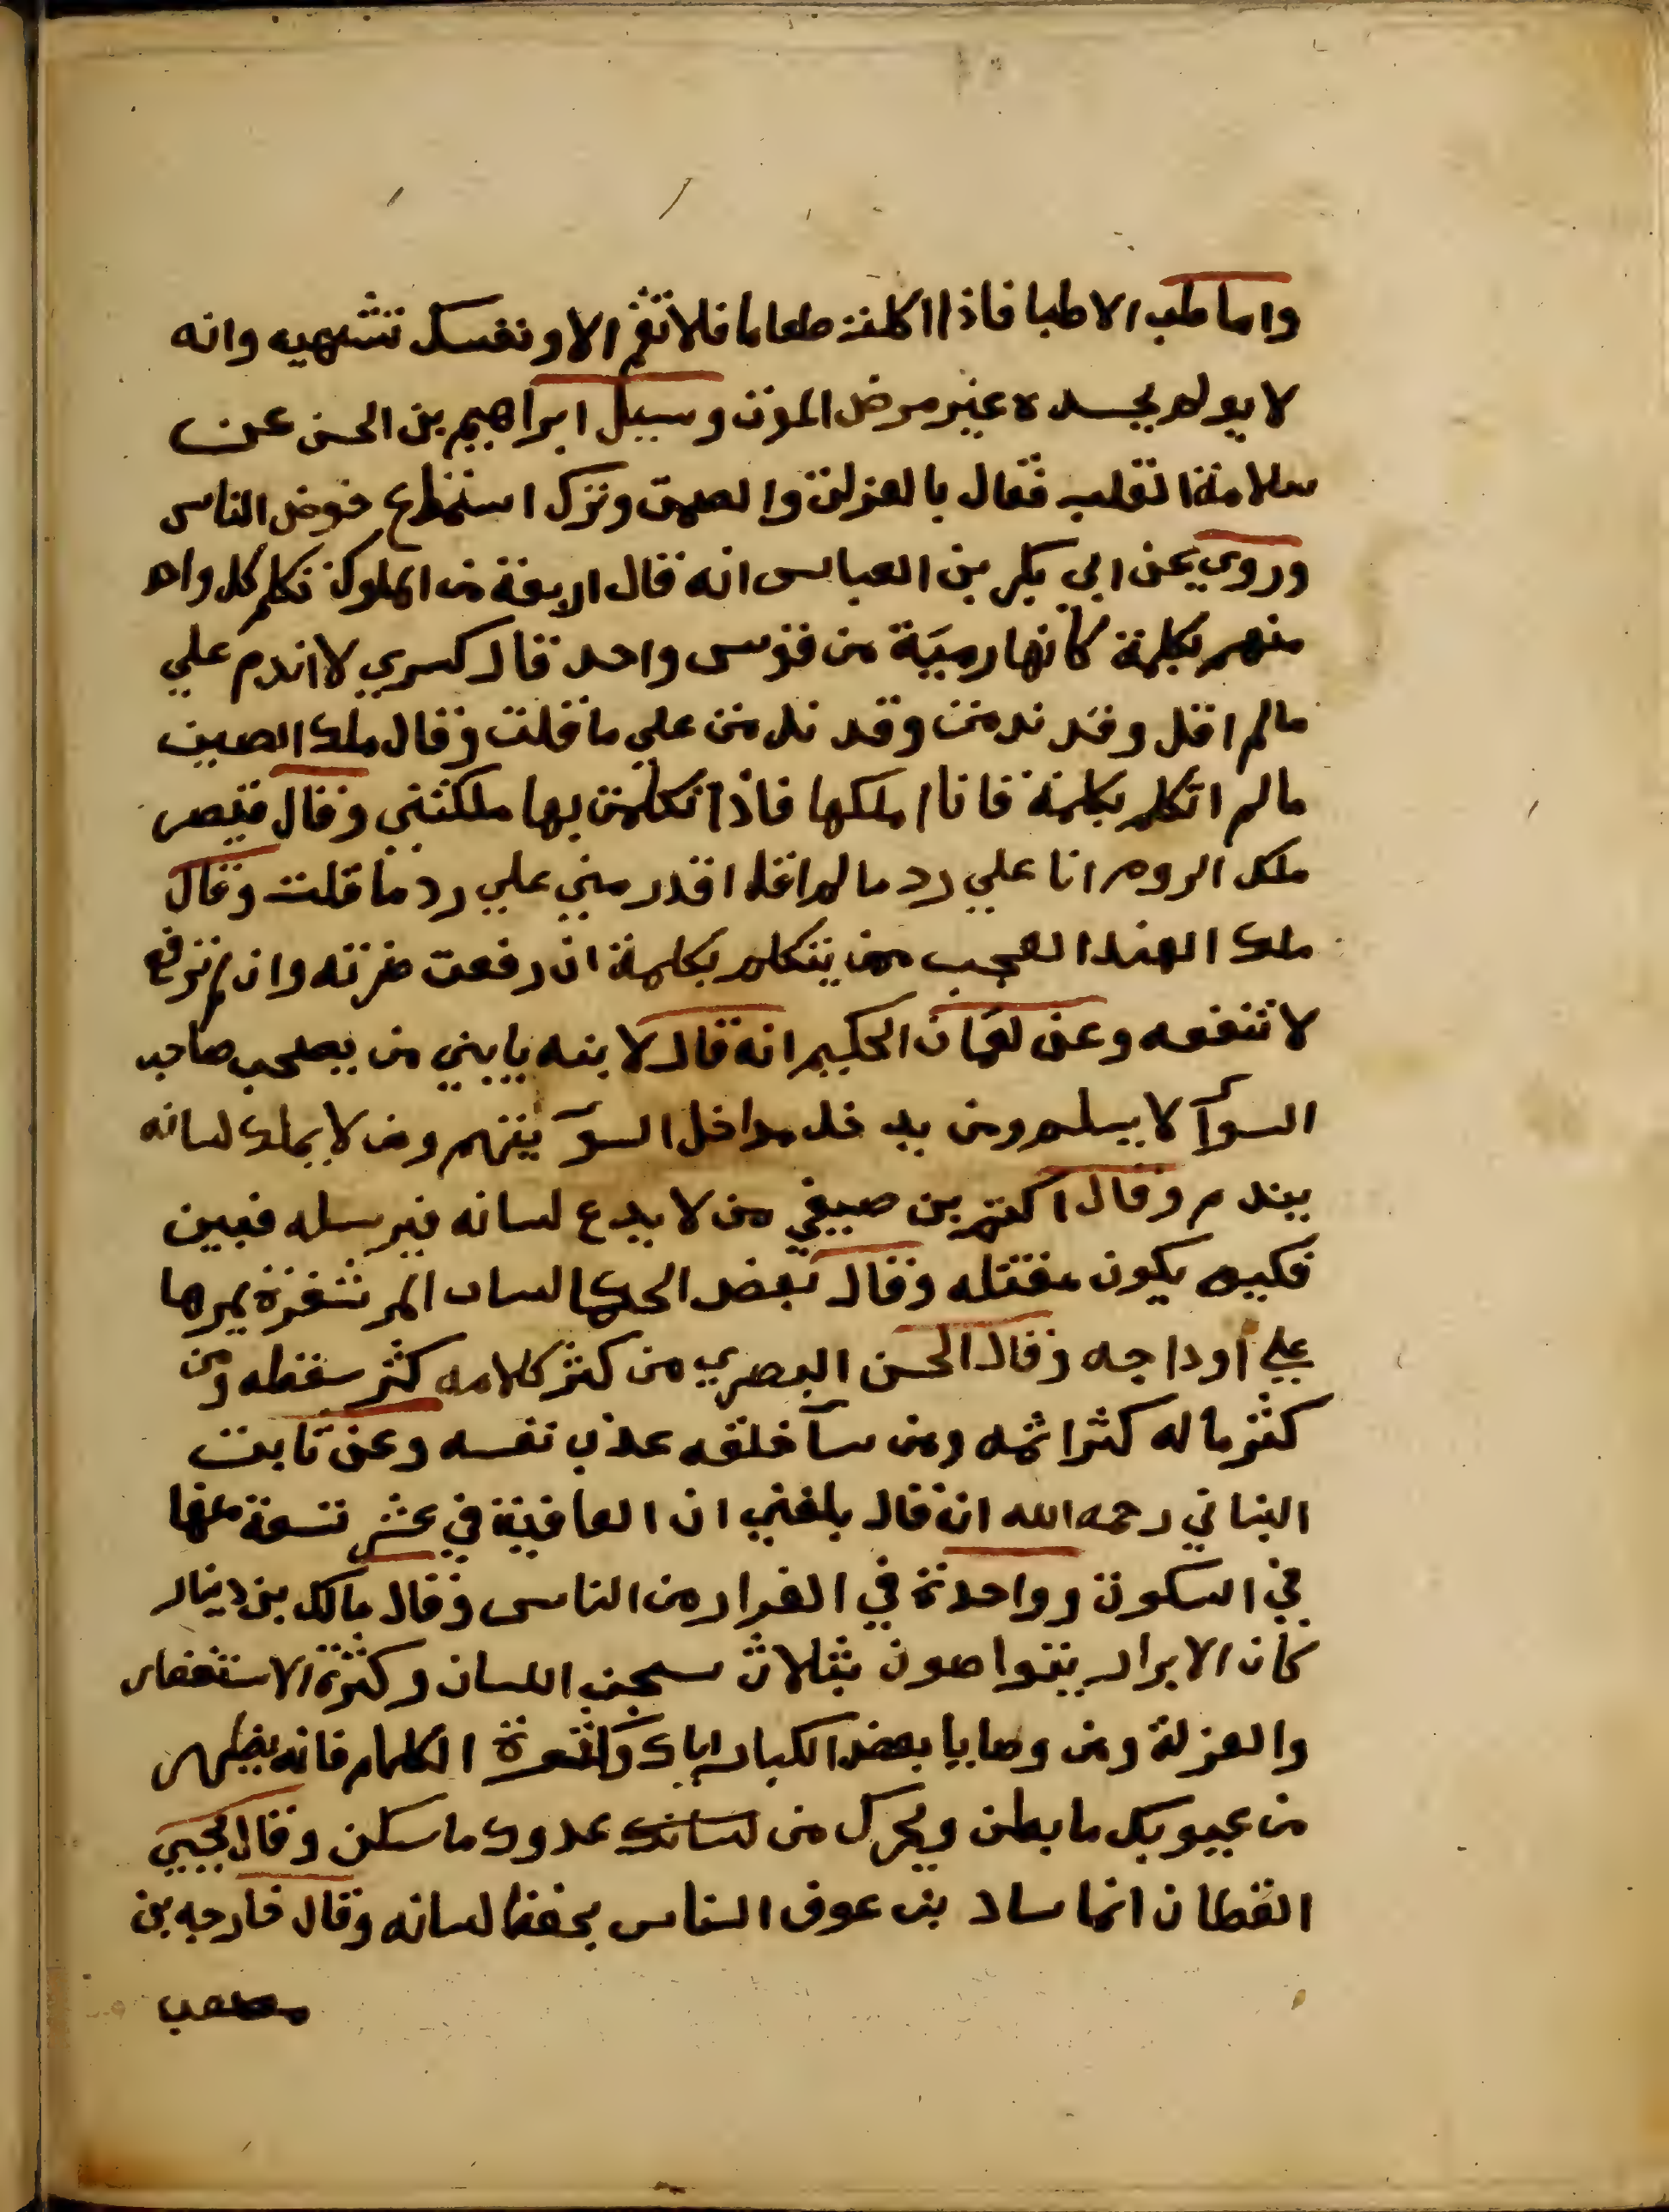 واما طب الاطبا فاذا اكلت طعاما فلا تقم الا ونفسك تشتهيه وانه
لا يولم بجسده غير مرض الموت وسيل ابراهيم بن الحسن عن
سلامة القلب فقال بالعزلة والصمت وترك استماع خوض الناس
وروي عن ابي بكر بن العباس انه قال اربعة من الملوك تكلم كل واحد
منهم بكلمة كانها رمية من قوس واحد قال كسري لا اندم علي
مالم اقل وقد ندمت وقد ندمت علي ما قلت وقال ملك الصين
مالم اتكلم بكلمة فانا املكها فاذا تكلمت بها ملكتني وقال قيصر
ملك الروم انا علي رد مالم اقل اقدر مني علي رد ما قلت وقال
ملك الهند العجب ممن يتكلم بكلمة ان رفعت ضرته وان لم ترفع
لا تنفعه وعن لقمان الحكيم انه قال لابنه يا بني من يصحب صاحب
السوآ لا يسلم ومن يدخل مداخل السوآ يتهم ومن لا يملك لسانه
يندم وقال اكثم بن صيفي من لا يدع لسانه فيرسله فبين
فكيه يكون مقتله وقال بعض الحكما لسان المر شفرة يمرها
علي اوداجه وقال الحسن البصري من كثر كلامه كثر سقطه ومن
كثر ماله كثر اثمه ومن سآ خلقه عذب نفسه وعن ثابت
البناني رحمه الله انه قال بلغني ان العافية في عشر تسعة منها
في السكوت وواحدة في الفرار من الناس وقال مالك بن دينار
كان الابرار يتواصون بثلاث سجن اللسان وكثرة الاستغفار
والعزلة ومن وصايا بعض الكبار اياك وكثرة الكلام فانه يظهر
من عيوبك ما بطن ويحرك من لسانك عدوك ما سكن وقال يحيي
القطان انما ساد بن عوف الناس بحفظ لسانه وقال خارجه بن
مصعب